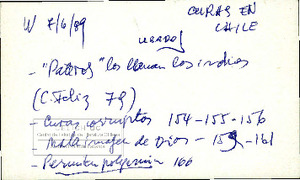 W 7/6/89 CURAS EN
CHILE
USADOS
- "Pateros" los llaman los indios
(C. Feliz 79)
- Curas corruptos 154-155-156
- Mala imagen de Dios - 159-161
- Permiten poligamia 166